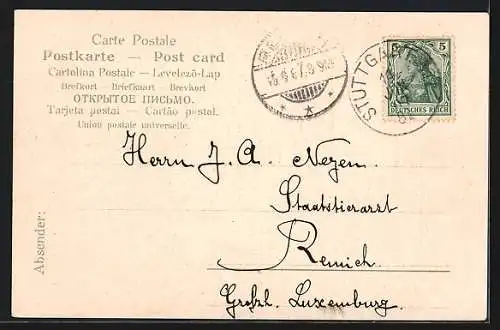 Carte Postale
Postkarte — Post card
Cartolina Postale — Levelező-Lap
Brefkort — Briefkaart — Brevkort
ОТКРЫТОЕ ПИСЬМО.
Tarjeta postal — Cartão postal.
Union postale universelle.
STUTTGA
5
DEUTSCHES REICH
Herrn J. A. Nezen.
Staatstierarzt
Remich
Großh. Luxemburg.
Absender: